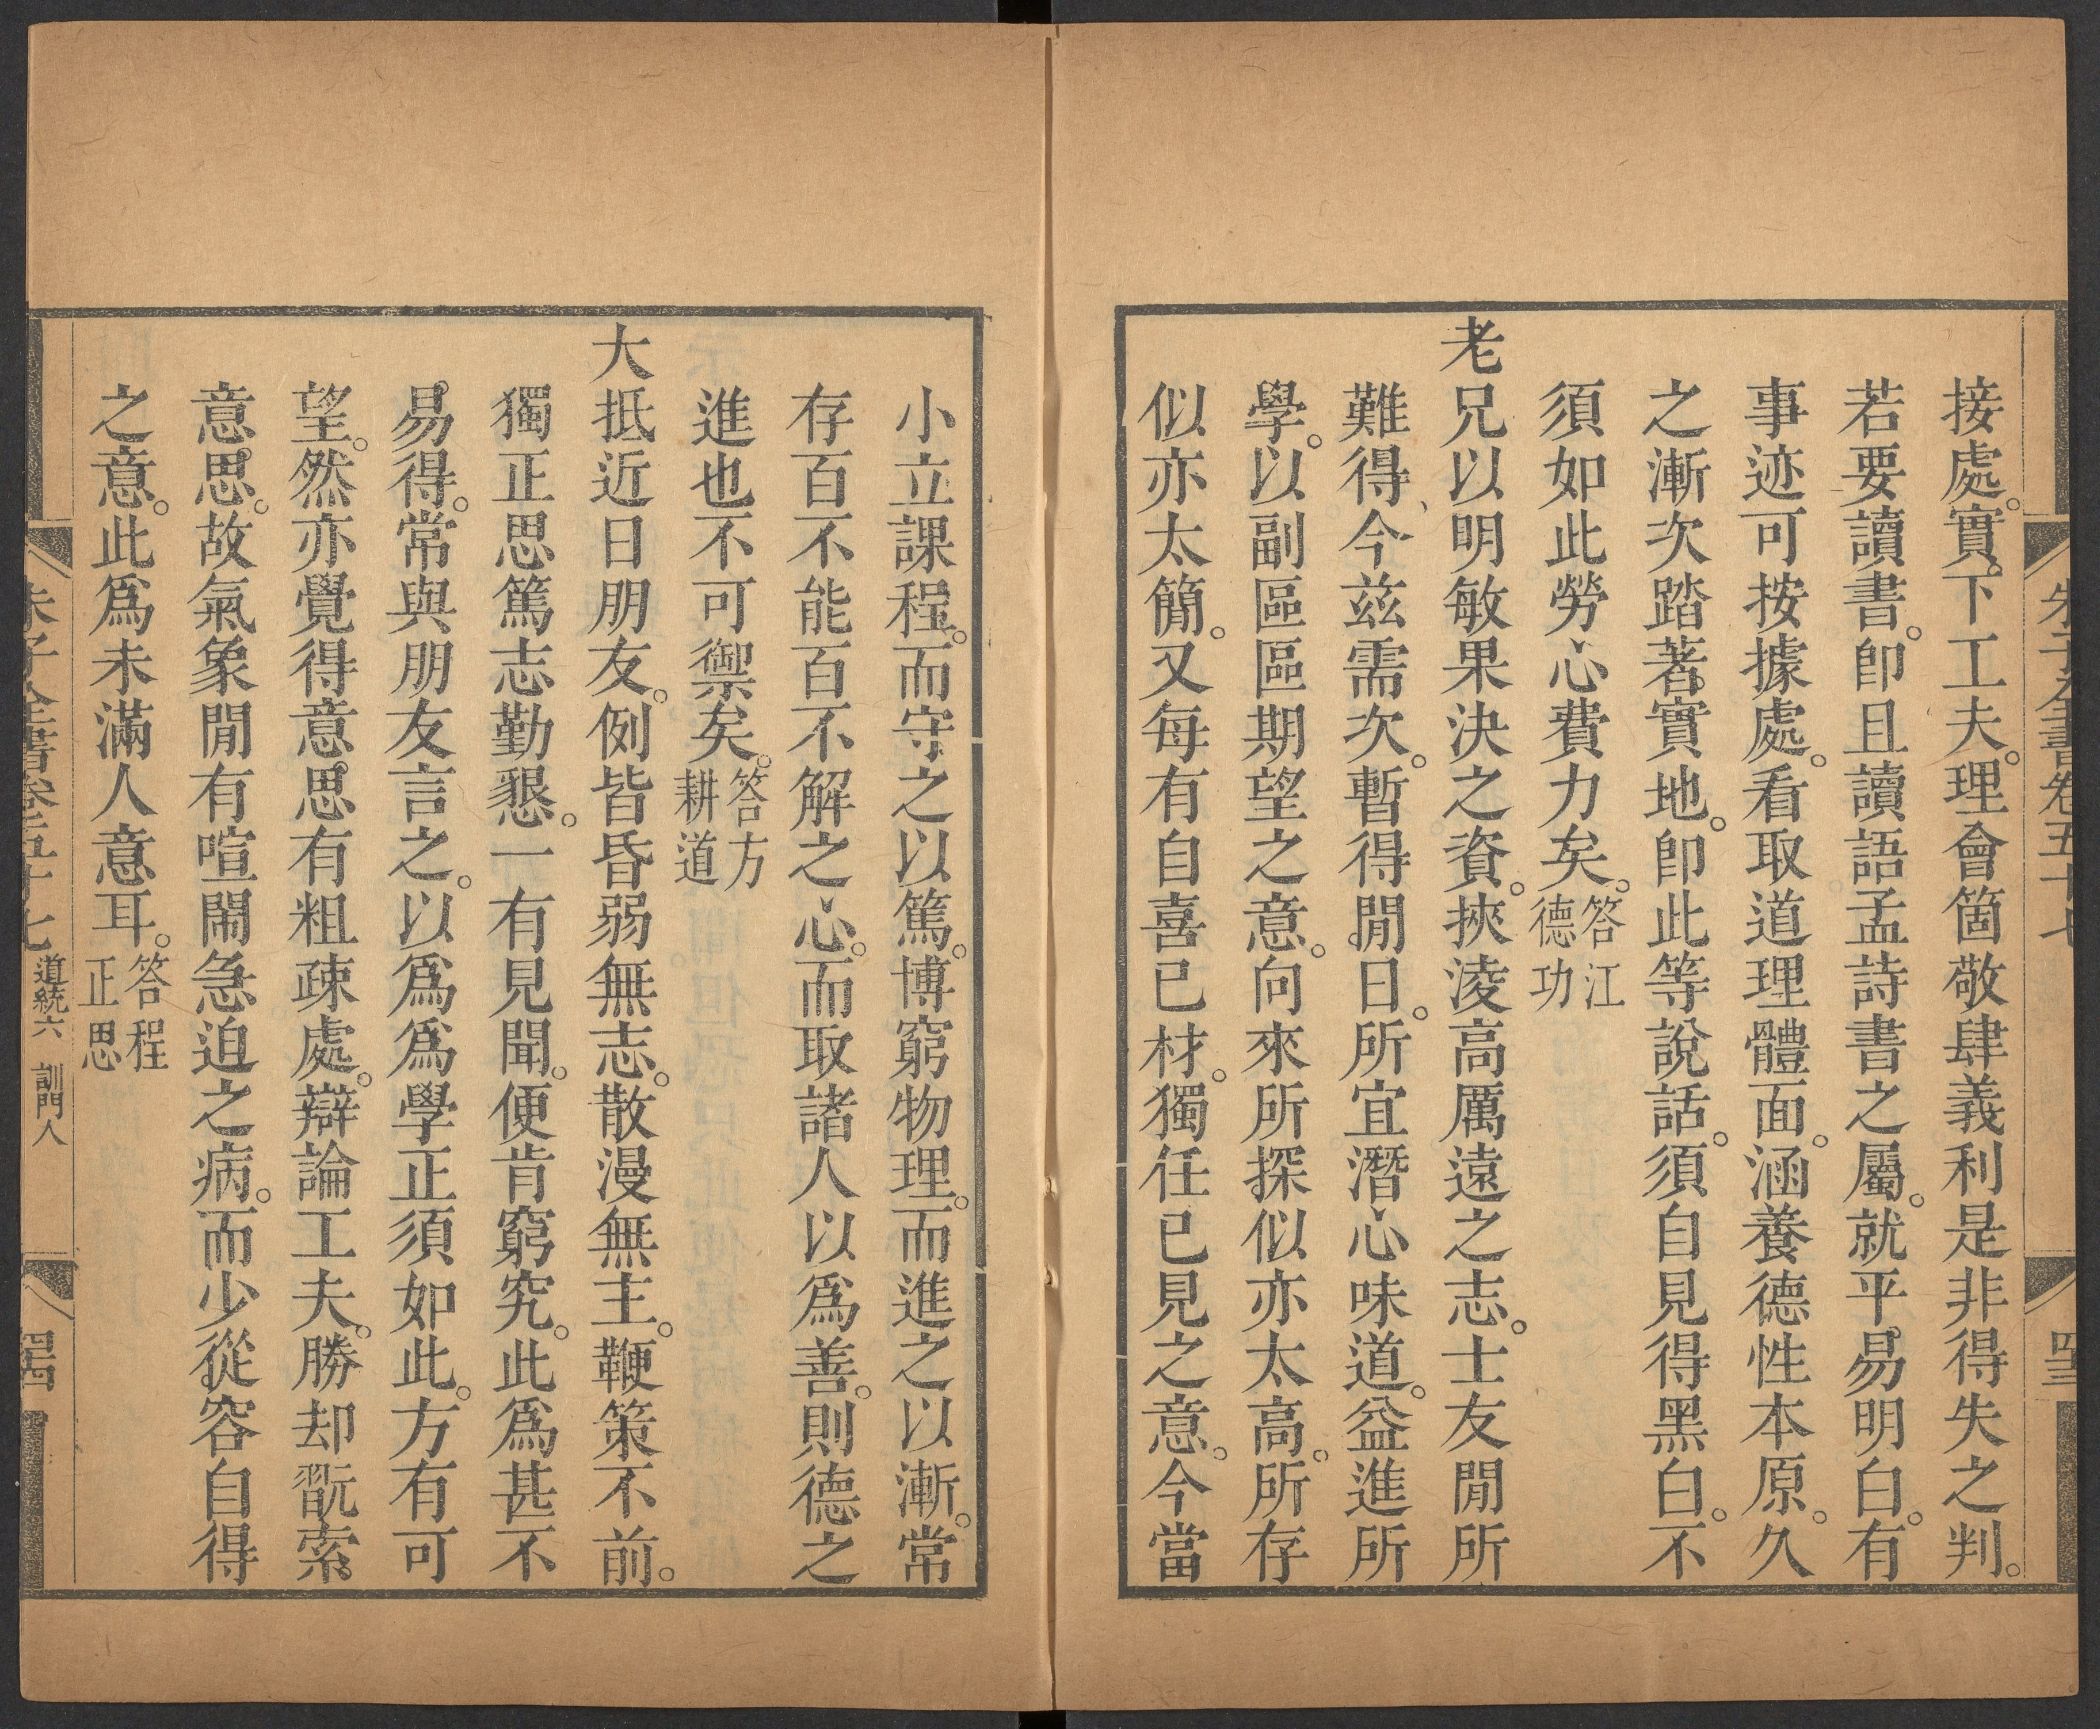 朱子全書卷五十七
接處。實下工夫。理會箇敬肆義利是非得失之判。
若要讀書。卽且讀語孟詩書之屬。就平易明白。有
事迹可按據處。看取道理體面。涵養德性本原。久
之漸次踏著實地。卽此等說話。須自見得黑白。不
須如此勞心費力矣。答江德功
老兄以明敏果決之資。挾淩高厲遠之志。士友閒所
難得、今兹需次。暫得閒日。所宜潛心味道。益進所
學。以副區區期望之意。向來所探似亦太高。所存
似亦太簡。又每有自喜已材。獨任已見之意。今當
小立課程。而守之以篤。博窮物理。而進之以漸。常
存百不能百不解之心。而取諸人以爲善。則德之
進也不可禦矣。答方耕道
大抵近日朋友。例皆昏弱無志。散漫無主。鞭策不前。
獨正思篤志勤懇。一有見聞。便肯窮究。此爲甚不
易得。常與朋友言之。以爲爲學正須如此。方有可
望。然亦覺得意思有粗疎處。辯論工夫。勝却翫索
意思。故氣象閒有喧鬧急迫之病。而少從容自得
之意。此爲未滿人意耳。答程正思
朱子全書卷五十七 道統六 訓門人